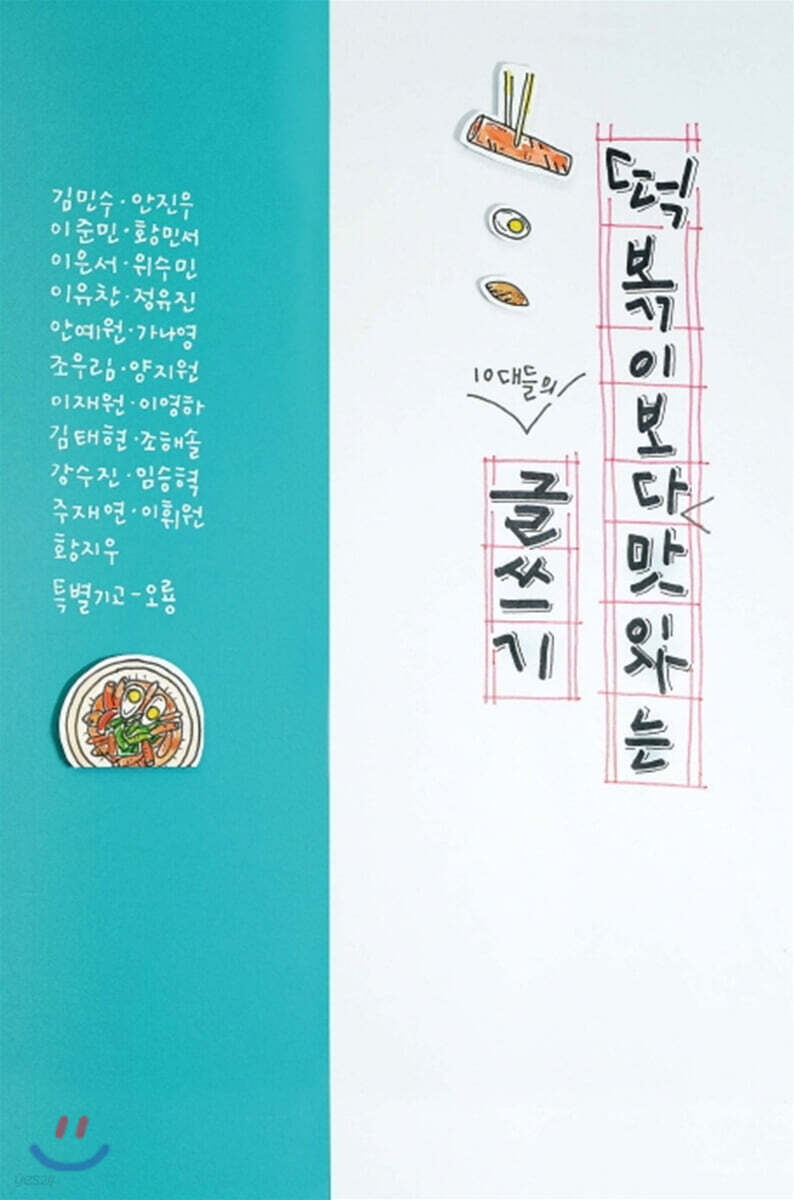 떡볶이보다맛있는
10대들의
글쓰기
김민수·안진우
이준민·황민서
이은서·위수민
이유찬·정유진
안예원·가나영
조우림·양지원
이재원·이영하
김태현·조해솔
강수진·임승혁
주재연·이휘원
황지우
특별기고-오룡
yes24